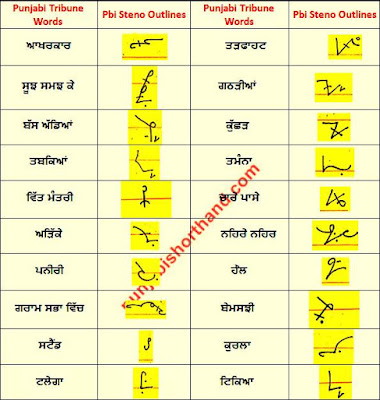 Punjabi Tribune Words Pbi Steno Outlines Punjabi Tribune Words Pbi Steno Outlines
ਆਖਰਕਾਰ ਤੜਫਾਹਟ
ਸੂਝ ਸਮਝ ਕੇ ਗਠੜੀਆਂ
ਬੱਸ ਅੱਡਿਆਂ ਕੁੱਛੜ
ਤਬਕਿਆਂ ਤਮੰਨਾ
ਵਿੱਤ ਮੰਤਰੀ ਚਾਰੇ ਪਾਸੇ
ਅੜਿੱਕੇ ਨਹਿਰੋ ਨਹਿਰ
ਪਨੀਰੀ ਹੱਲ
ਗਰਾਮ ਸਭਾ ਵਿੱਚ ਬੇਸਮਝੀ
ਸਟੈਂਡ ਕੁਰਲਾ
ਟਲੇਗਾ ਟਿਕਿਆ
punjabishorthand.com